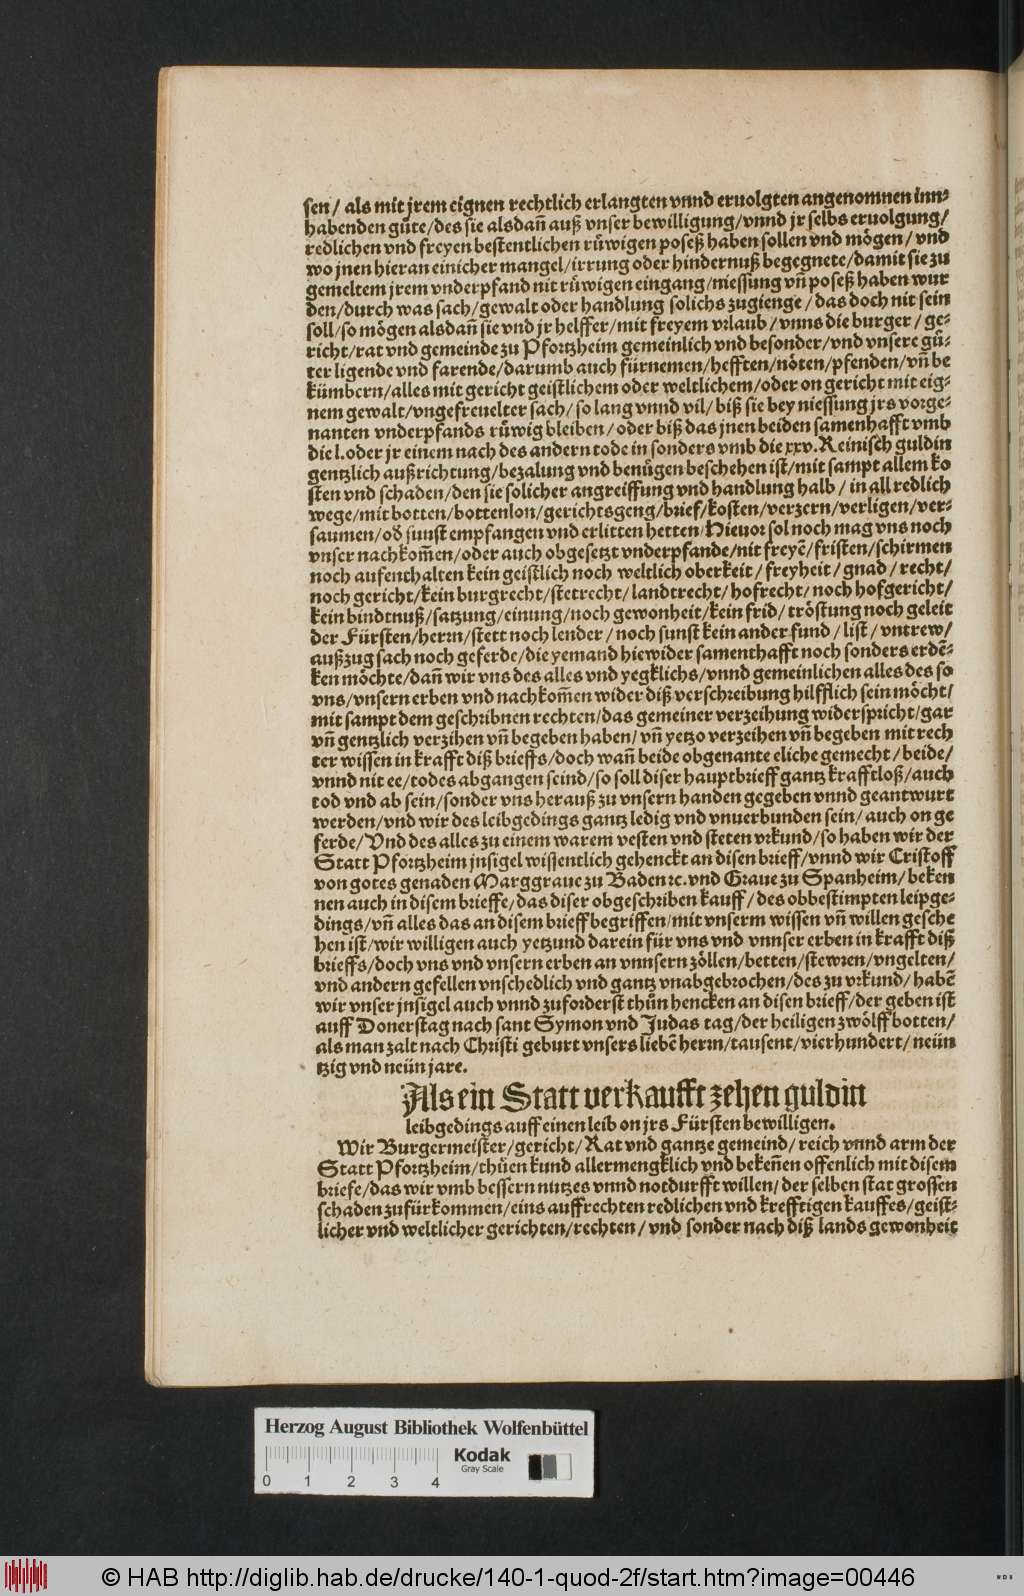 sen / als mit jrem eignen rechtlich erlangten vnnd eruolgten angenomnen inn⸗
habenden guͤte/des sie alsdañ auß vnser bewilligung/vnnd jr selbs eruolgung/
redlichen vnd freyen bestentlichen ruͤwigen poseß haben sollen vnd moͤgen/ vnd
wo jnen hieran einicher mangel/irrung oder hindernuß begegnete/damit sie zu
gemeltem jrem vnderpfand nit ruͤwigen eingang/niessung vñ poseß haben wur
den/durch was sach/gewalt oder handlung solichs zugienge / das doch nit sein
soll/so moͤgen alsdañ sie vnd jr helffer/mit freyem vrlaub / vnns die burger / ge⸗
richt/rat vnd gemeinde zu Pfortzheim gemeinlich vnd besonder/vnd vnsere guͤ⸗
ter ligende vnd farende/darumb auch fürnemen/hefften/nöten/pfenden/vñ be
kümbern/alles mit gericht geistlichem oder weltlichem/oder on gericht mit eig⸗
nem gewalt/vngefreuelter sach/ so lang vnnd vil/ biß sie bey niessung jrs vorge⸗
nanten vnderpfands ruͤwig bleiben/ oder biß das jnen beiden samenhafft vmb
die l.oder jr einem nach des andern tode in sonders vmb die xxv.Reinisch guldin
gentzlich außrichtung/bezalung vnd benuͤgen beschehen ist/mit sampt allem ko
sten vnd schaden/den sie solicher angreiffung vnd handlung halb / in all redlich
wege/mit botten/bottenlon/gerichtsgeng/brief/kosten/verzern/verligen/ver⸗
saumen/od̃ sunst empfangen vnd erlitten hetten/Hieuor sol noch mag vns noch
vnser nachkom̃en/oder auch obgesetzt vnderpfande/nit freyẽ/fristen/schirmen
noch aufenthalten kein geistlich noch weltlich oberkeit / freyheit / gnad / recht/
noch gericht/kein burgrecht/stetrecht/ landtrecht/ hofrecht/ noch hofgericht/
kein bindtnuß/satzung/einung/noch gewonheit/kein frid/ tröstung noch geleit
der Fürsten/herrn/stett noch lender / noch sunst kein ander fund / list / vntrew/
außzug sach noch geferde/die yemand hiewider samenthafft noch sonders erdẽ⸗
ken möchte/dañ wir vns des alles vnd yegklichs/vnnd gemeinlichen alles des so
vns/vnsern erben vnd nachkom̃en wider diß verschreibung hilfflich sein möcht/
mit sampt dem geschribnen rechten/das gemeiner verzeihung widerspricht/gar
vñ gentzlich verzihen vñ begeben haben/ vñ yetzo verzeihen vñ begeben mit rech
ter wissen in krafft diß brieffs/doch wañ beide obgenante eliche gemecht / beide/
vnnd nit ee/todes abgangen seind/so soll diser hauptbrieff gantz krafftloß/auch
tod vnd ab sein/sonder vns herauß zu vnsern handen gegeben vnnd geantwurt
werden/vnd wir des leibgedings gantz ledig vnd vnuerbunden sein/ auch on ge
ferde/ Vnd des alles zu einem warem vesten vnd steten vrkund/so haben wir der
Statt Pfortzheim jnsigel wissentlich gehenckt an disen brieff/vnnd wir Cristoff
von gotes genaden Marggraue zu Baden ꝛc.vnd Graue zu Spanheim/ beken
nen auch in disem brieffe/das diser obgeschriben kauff/ des obbestimpten leipge⸗
dings/vñ alles das an disem brieff begriffen/mit vnserm wissen vñ willen gesche
hen ist/wir willigen auch yetzund darein für vns vnd vnnser erben in krafft diß
brieffs/doch vns vnd vnsern erben an vnnsern zöllen/betten/stewren/vngelten/
vnd andern gefellen vnschedlich vnd gantz vnabgebrochen/des zu vrkund/ habẽ
wir vnser jnsigel auch vnnd zuforderst thuͤn hencken an disen brieff/der geben ist
auff Donerstag nach sant Symon vnd Judas tag/der heiligen zwölff botten/
als man zalt nach Christi geburt vnsers liebẽ herrn/tausent/vierhundert/ neün
tzig vnd neün jare.
Als ein Statt verkaufft zehen guldin
leibgedings auff einen leib on jrs Fürsten bewilligen.
Wir Burgermeister/gericht/ Rat vnd gantze gemeind/ reich vnnd arm der
Statt Pfortzheim/thüen kund allermengklich vnd bekeñen offenlich mit disem
briefe/das wir vmb bessern nutzes vnnd notdurfft willen/ der selben stat grossen
schaden zufürkommen/eins auffrechten redlichen vnd krefftigen kauffes/geist⸗
licher vnd weltlicher gerichten/rechten / vnd sonder nach diß lands gewonheit
Herzog August Bibliothek Wolfenbüttel
Kodak
Gray Scale
0 1 2 3 4
© HAB http://diglib.hab.de/drucke/140-1-quod-2f/start.htm?image=00446